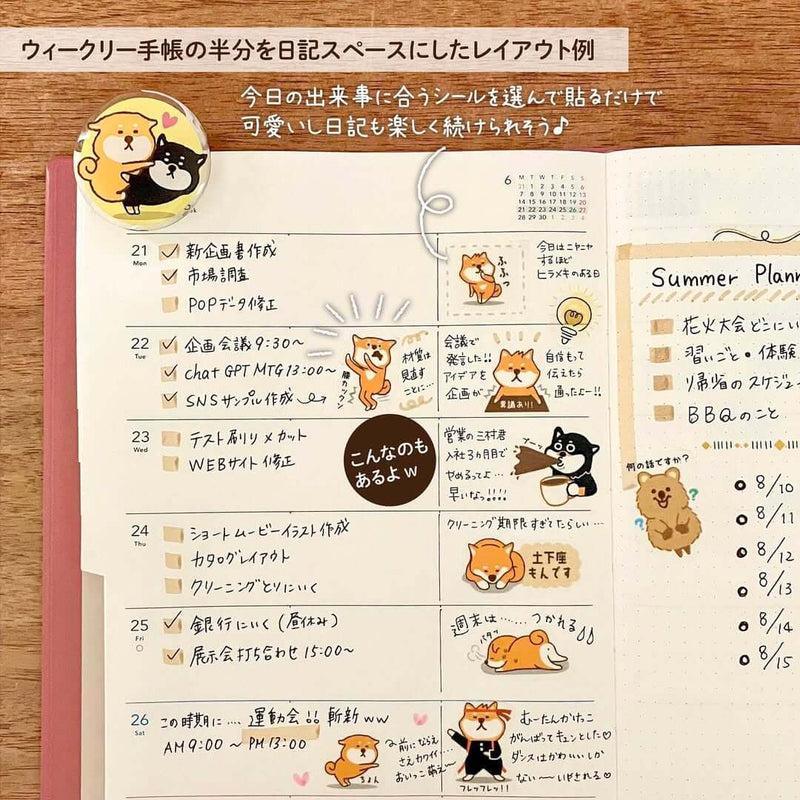 ウィークリー手帳の半分を日記スペースにしたレイアウト例
今日の出来事に合うシールを選んで貼るだけで
可愛いし日記も楽しく続けられそう♪
6
M T W T F S S
31 1 2 3 4 5 6
7 8 9 10 11 12 13
14 15 16 17 18 19 20
21 22 23 24 25 26 27
28 29 30 1 2 3 4
21
Mon
新企画書作成
市場調査
POPデータ修正
ふふっ
今日はニヤニヤ
するほど
ヒラメキのある日
22
Tue
企画会議 9:30〜
chat GPT MTG 13:00〜
SNSサンプル作成
膝カックン
材質は
見直す
ことに…
会議で
発言した!!
アイデアを
企画が
異議あり!
自信もって
伝えたら
通ったよー!!
23
Wed
テスト刷り×カット
WEBサイト修正
こんなのも
あるよw
営業の三村君
入社3ヵ月目で
やめるってよ…
早いなっ!!!!
ブーッ
24
Thu
ショートムービーイラスト作成
カタログレイアウト
クリーニングとりにいく
クリーニング期限すぎてたらしい…
土下座
もんです
25
Fri
銀行にいく(昼休み)
展示会打ち合わせ 15:00〜
週末は……つかれる
パタッ
26
Sat
この時期に…. 運動会!! 斬新ww
AM 9:00 〜 PM 13:00
ちょん
前にならえ
さえカワイイ…
おいっこ萌え〜
フレッフレッ!!
むーたんかけっこ
がんばってキュンとした♡
ダンスはかわいいしか
ない〜いやされる♡
Summer Plann
花火大会どこにい
習いごと・体験
帰省のスケジュー
BBQのこと
何の話ですか?
8/10
8/11
8/12
8/13
8/14
8/15